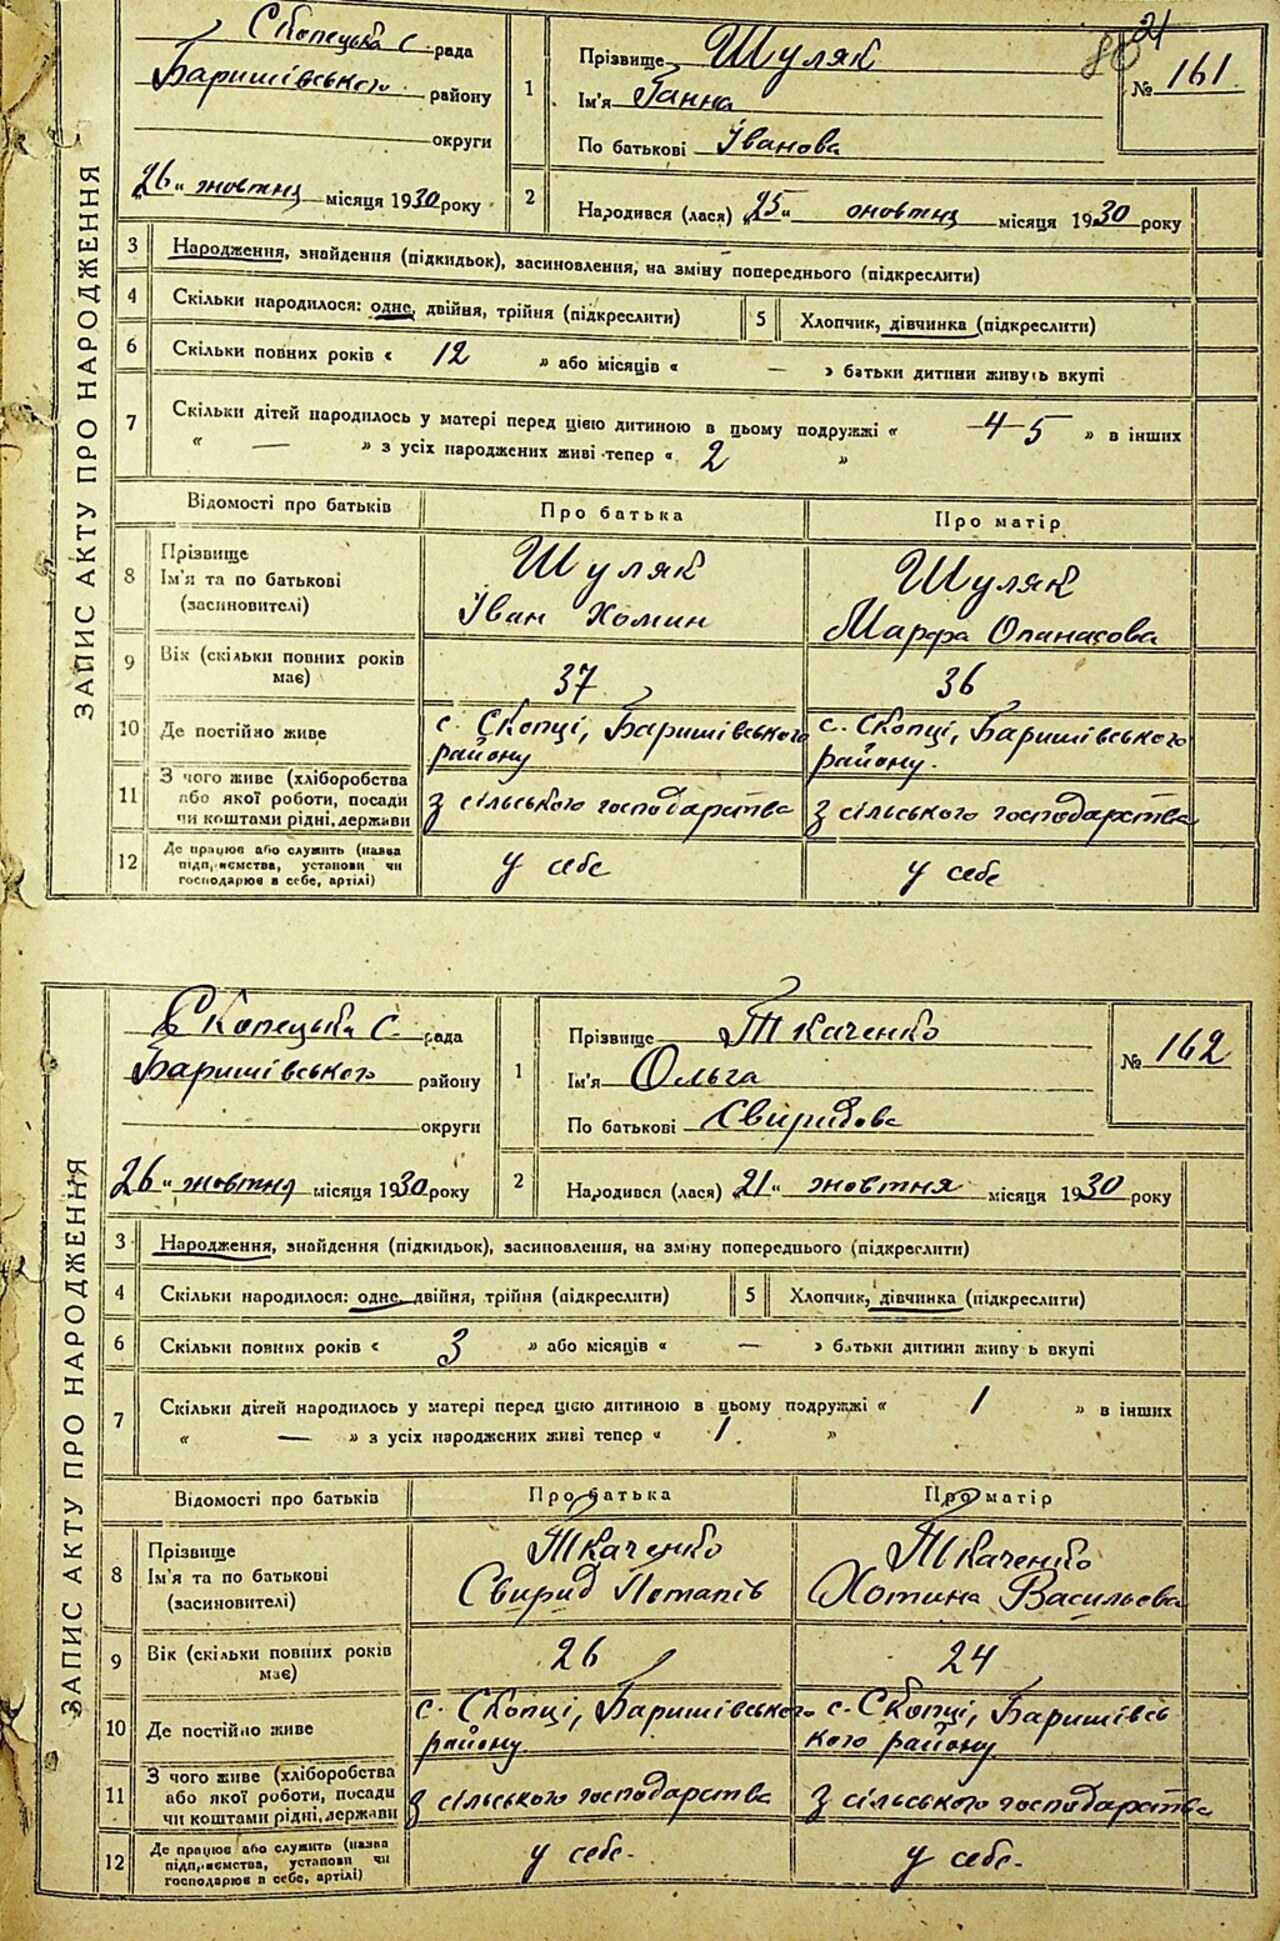 ЗАПИС АКТУ ПРО НАРОДЖЕННЯ
Скопецька с. рада
Баришівського району
округи
"26" жовтня місяця 1930 року
1 Прізвище Шуляк
Ім'я Ганна
По батькові Іванова
21
80
№ 161
2 Народився (лася) "25" жовтня місяця 1930 року
3 Народження, знайдення (підкидьок), засиновлення, на зміну попереднього (підкреслити)
4 Скільки народилося: одне, двійня, трійня (підкреслити) 5 Хлопчик, дівчинка (підкреслити)
6 Скільки повних років « 12 » або місяців « — » батьки дитини живуть вкупі
7 Скільки дітей народилось у матері перед цією дитиною в цьому подружжі « 4-5 » в інших
« — » з усіх народжених живі тепер « 2 »
Відомості про батьків Про батька Про матір
8 Прізвище Шуляк Шуляк
Ім'я та по батькові Іван Хомин Марфа Опанасова
(засиновителі)
9 Вік (скільки повних років має) 37 36
10 Де постійно живе с. Скопці, Баришівського району с. Скопці, Баришівського району.
11 З чого живе (хліборобства або якої роботи, посади чи коштами рідні, держави з сільського господарства з сільського господарства
12 Де працює або служить (назва підприємства, установи чи господарює в себе, артілі) у себе у себе
ЗАПИС АКТУ ПРО НАРОДЖЕННЯ
Скопецька с. рада
Баришівського району
округи
26" жовтня місяця 1930 року
1 Прізвище Ткаченко
Ім'я Ольга
По батькові Свиридова
№ 162
2 Народився (лася) "21" жовтня місяця 1930 року
3 Народження, знайдення (підкидьок), засиновлення, на зміну попереднього (підкреслити)
4 Скільки народилося: одне, двійня, трійня (підкреслити) 5 Хлопчик, дівчинка (підкреслити)
6 Скільки повних років « 3 » або місяців « — » батьки дитини живу ь вкупі
7 Скільки дітей народилось у матері перед цією дитиною в цьому подружжі « 1 » в інших
« — » з усіх народжених живі тепер « 1. »
Відомості про батьків Про батька Про матір
8 Прізвище Ткаченко Ткаченко
Ім'я та по батькові Свирид Потапів Хотина Васильова
(засиновителі)
9 Вік (скільки повних років має) 26 24
10 Де постійно живе с. Скопці, Баришівського району. с. Скопці, Баришівського району
11 З чого живе (хліборобства або якої роботи, посади чи коштами рідні, держави з сільського господарства з сільського господарства
12 Де працює або служить (назва підприємства, установи чи господарює в себе, артілі) у себе. у себе.